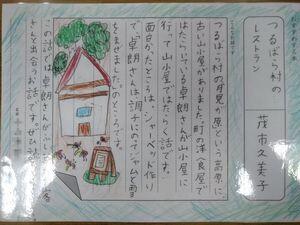 つるばら村の
レストラン
茂市久美子
つるばら村の月見が原という高原に
古い山小屋がありました。町の洋食屋で
はたらいている卓朗さんが山小屋に
行って山小屋ではたらく話です。
面白かったところは、シャーベット作り
で卓朗さんは調子にのってジャムと雪
をまぜました。のところです。
この話では卓朗さんが
さんと出合うお話です。ぜひ